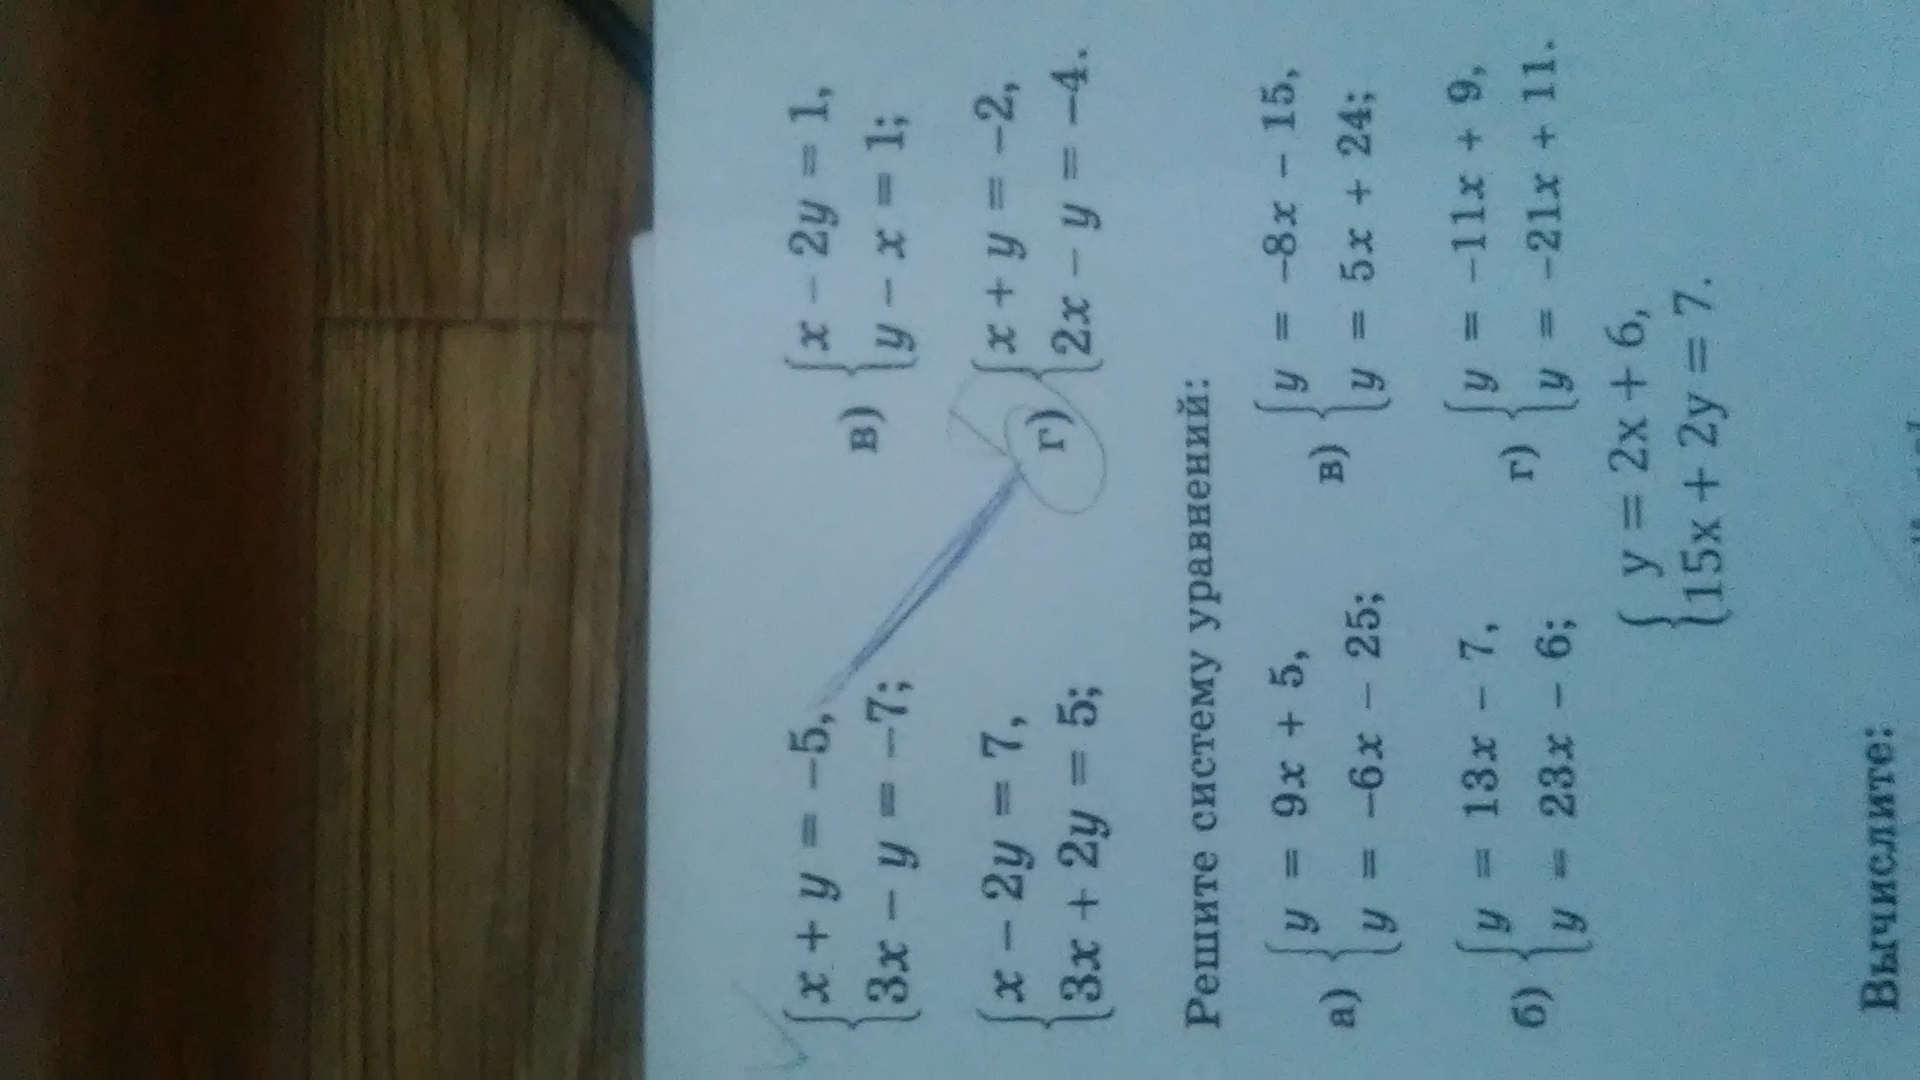 x + y = -5,
3x - y = -7;
в) x - 2y = 1,
y - x = 1;
x - 2y = 7,
3x + 2y = 5;
г) x + y = -2,
2x - y = -4.
Решите систему уравнений:
а) y = 9x + 5,
y = -6x - 25;
в) y = -8x - 15,
y = 5x + 24;
б) y = 13x - 7,
y = 23x - 6;
г) y = -11x + 9,
y = -21x + 11.
y = 2x + 6,
15x + 2y = 7.
Вычислите: